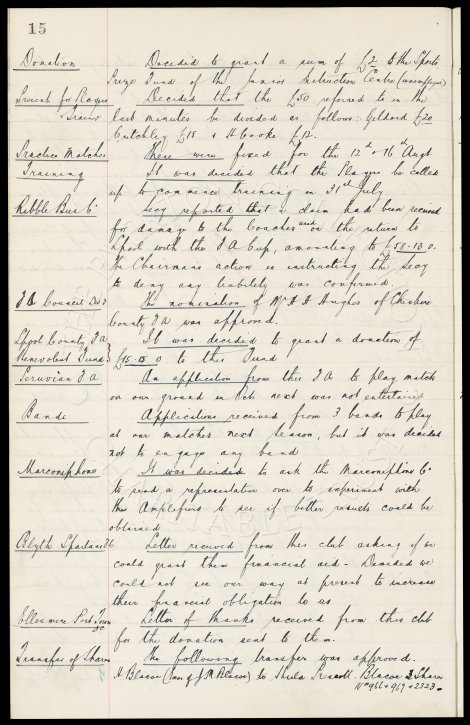 15
Donation Decided to grant a sum of £2 to the Sports
Prize Fund of the Junior Instruction Centre (unemployed)
Present for Players Decided that the £50 referred to in the
+ Trainer last minutes be divided as follows: Geldard £20
Critchley £18 + H Cooke £12.
Practice Matches These were fixed for the 12th + 16th Augt
Training It was decided that the Players be called
up to commence training on 31st July
Ribble Bus Co Secy reported that a claim had been received
for damage to the Coaches used on the return to
Lpool with the F A Cup, amounting to £58-13 0.
The Chairmans action in instructing the Secy
to deny any liability was confirmed.
FA Council Div 3 The nomination of Mr Hughes of Cheshire
County F A was approved.
Lpool County F A It was decided to grant a donation of
Benevolent Fund £15-15 0 to this Fund
Peruvian F A An application from this F A to play match
on our ground in Octr next was not entertained
Bands Applications received from 3 bands to play
at our matches next season, but it was decided
not to engage any band
Marconiphone It was decided to ask the Marconiphone Co
to send a representative over to experiment with
the Amplifiers to see if better results could be
obtained
Blyth Spartans Letter received from this club asking if we
could grant them financial aid - Decided we
could not see our way at present to increase
their financial obligation to us
Ellesmere Port Town Letter of thanks received from this club
for the donation sent to them.
Transfer of Shares The following transfer was approved.
H Blascow (exor of J M Blascow) to Sheila Prescott Blascow 3 Shares
Nos 966 + 967 + 2323.